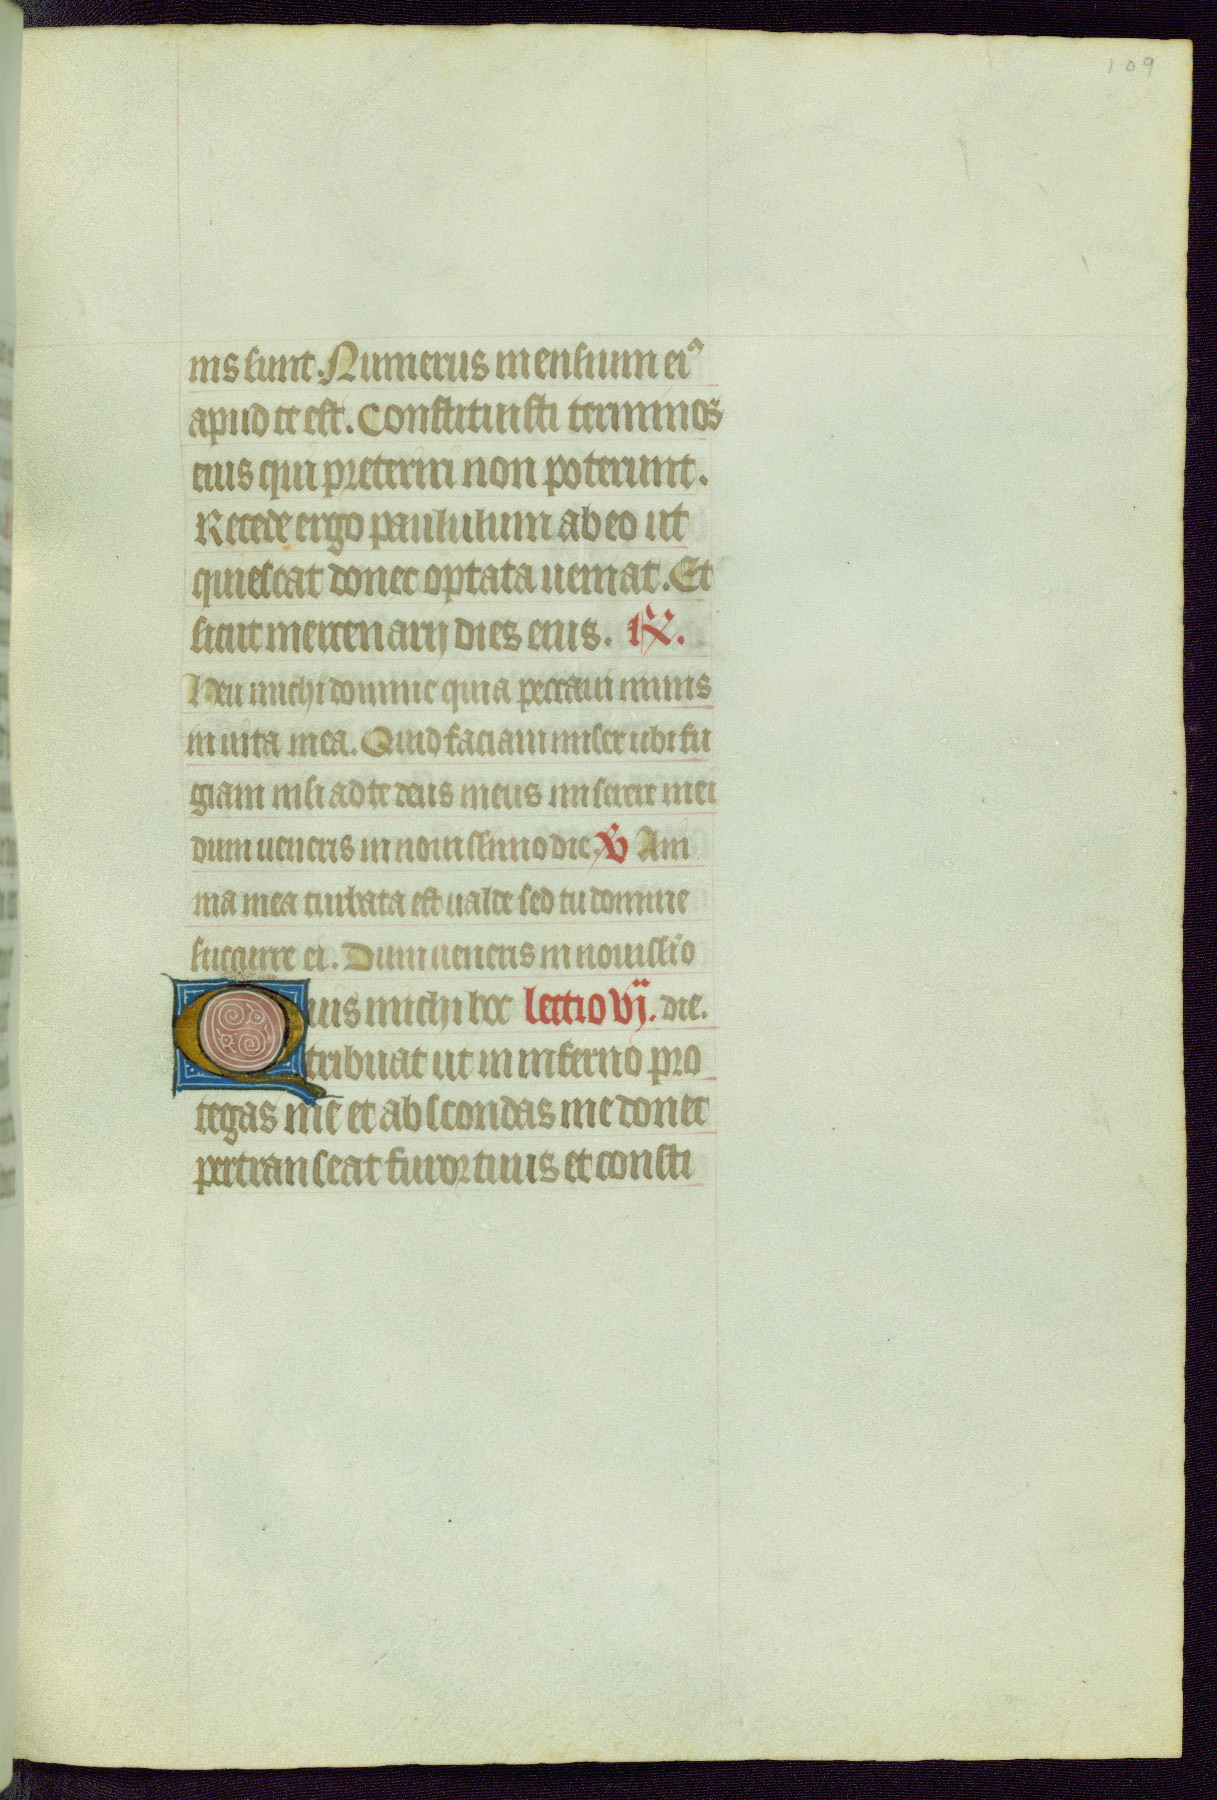 109
nis sunt. Numerus mensium ei⁹
apud te est. Constituisti terminos
eius qui preteriri non poterunt.
Recede ergo paululum ab eo ut
quiescat donec optata ueniat. Et
sicut mercenarij dies eius. R.
Heu michi domine quia peccaui nimis
in uita mea. Quid faciam miser ubi fu
giam nisi ad te deus meus miserere mei
dum ueneris in nouissimo die. V Ani
ma mea turbata est ualde sed tu domine
succurre ei. Dum ueneris in nouissi̅o
Quis michi hoc lectio vj. die.
tribuat ut in inferno pro
tegas me et abscondas me donec
pertranseat furor tuus et consti